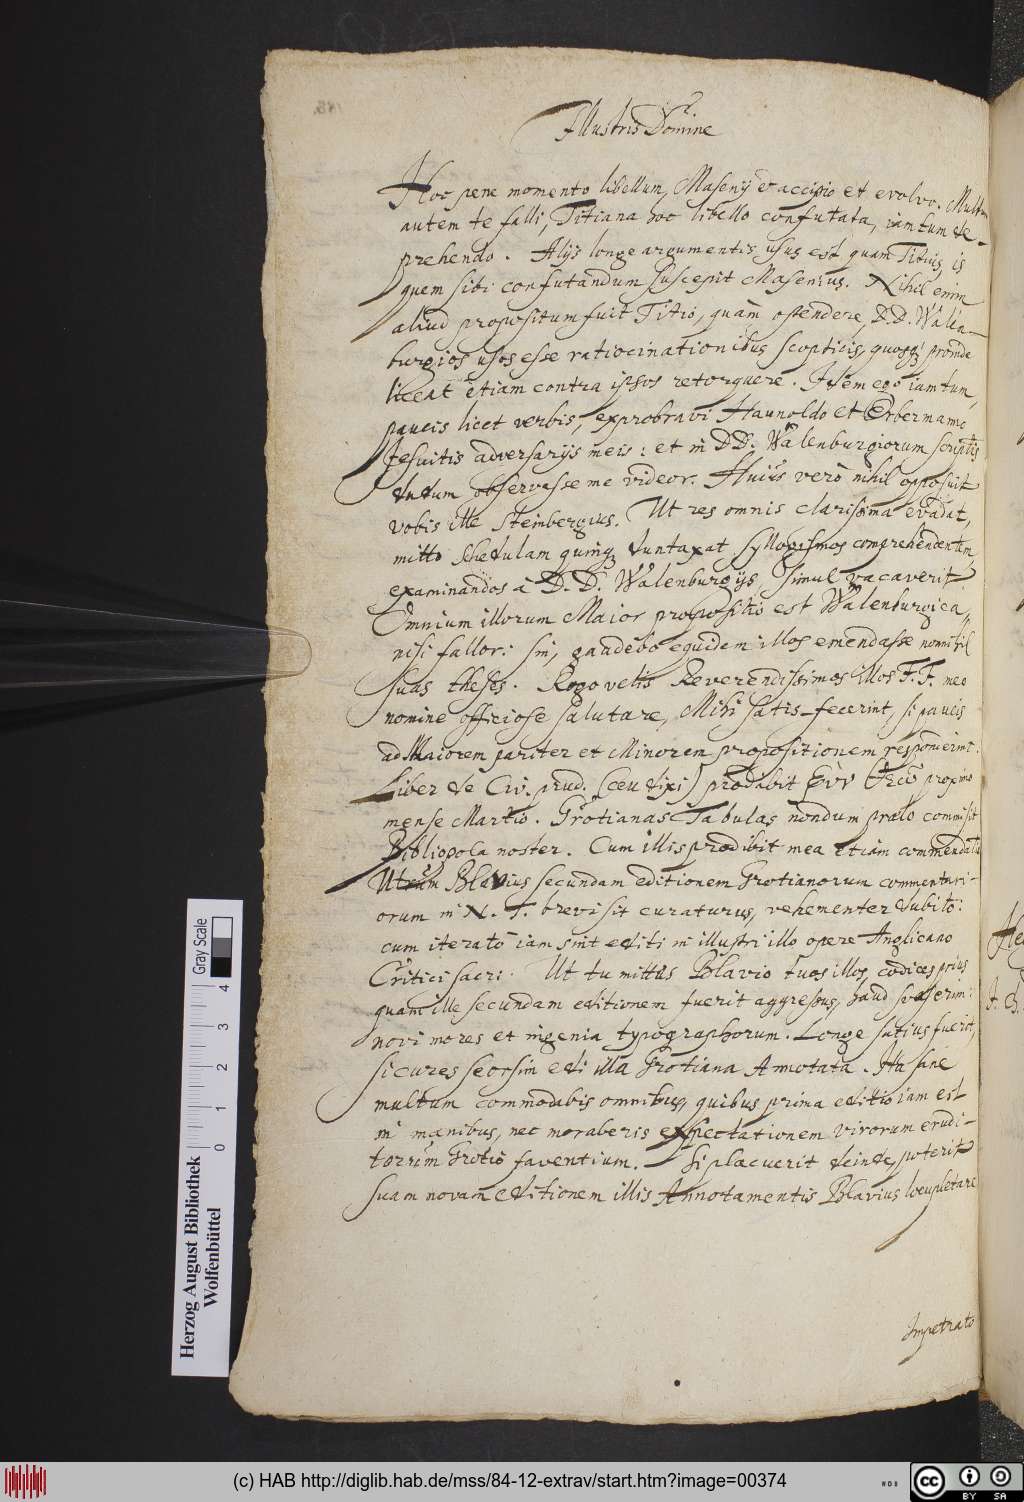 Illustris Domine
Hoc pene momento libellum, Masenij et accipio et evolvo. Multum
autem te falli, Titiana hoc libello confutata, iam tum de-
prehendo. Alijs longe argumentis usus est quam Titius, is
quem sibi confutandum suscepit Masenius. Nihil enim
aliud propositum fuit Titio, quàm ostendere, D.D. Walen-
burgios usos esse ratiocinationibus scopticis, quosq; proinde
liceat etiam contra ipsos retorquere. Idem ego iam tum,
paucis licet verbis, exprobravi Haunoldo et Erbermanno
Jesuitis adversarijs meis: et in DD. Walenburgiorum scriptis
dudum observasse me videor. Huius verò nihil opposuit
vobis ille Steinbergius. Ut res omnis clarissima evadat,
mitto schedulam quinq; duntaxat syllogismos comprehendentem,
examinandos à D.D. Walenburgijs, simul vacaverit.
Omnium illorum Maior propositio est Walenburgica,
nisi fallor: sin, gaudebo equidem illos emendasse nonnihil
suas theses. Rogo velis Reverendissimos illos F.F. meo
nomine officiose salutare, Mihi satis-fecerint, si paucis
ad Maiorem pariter et Minorem propositionem responderint.
Liber de Civ. prud. (ceu dixi) prodibit proximo
mense Martio. Grotianas Tabulas nondum prælo commisit
Bibliopola noster. Cum illis prodibit mea etiam commendatio
Utrum Blavius secundam editionem Grotianorum commentari-
orum in N. T. brevi sit curaturus, vehementer dubito:
cum iterato iam sint editi in illustri illo opere Anglicano
Critici sacri. Ut tu mittas Blavio tuos illos codices prius
quam ille secundam editionem fuerit aggressus, haud suaserim:
novi mores et ingenia typographorum. Longe satius fuerit,
si cures seorsim edi illa Grotiana Annotata. Ita sane
multum commodabis omnibus, quibus prima editio iam est
in manibus, nec moraberis expectationem virorum erudi-
torum Grotio faventium. Si placuerit deinde, poterit
suam novam editionem illis Annotamentis Blavius locupletare
Impetrato
Herzog August Bibliothek
Wolfenbüttel
0 1 2 3 4
Gray Scale
(c) HAB http://diglib.hab.de/mss/84-12-extrav/start.htm?image=00374
WDB
cc BY SA